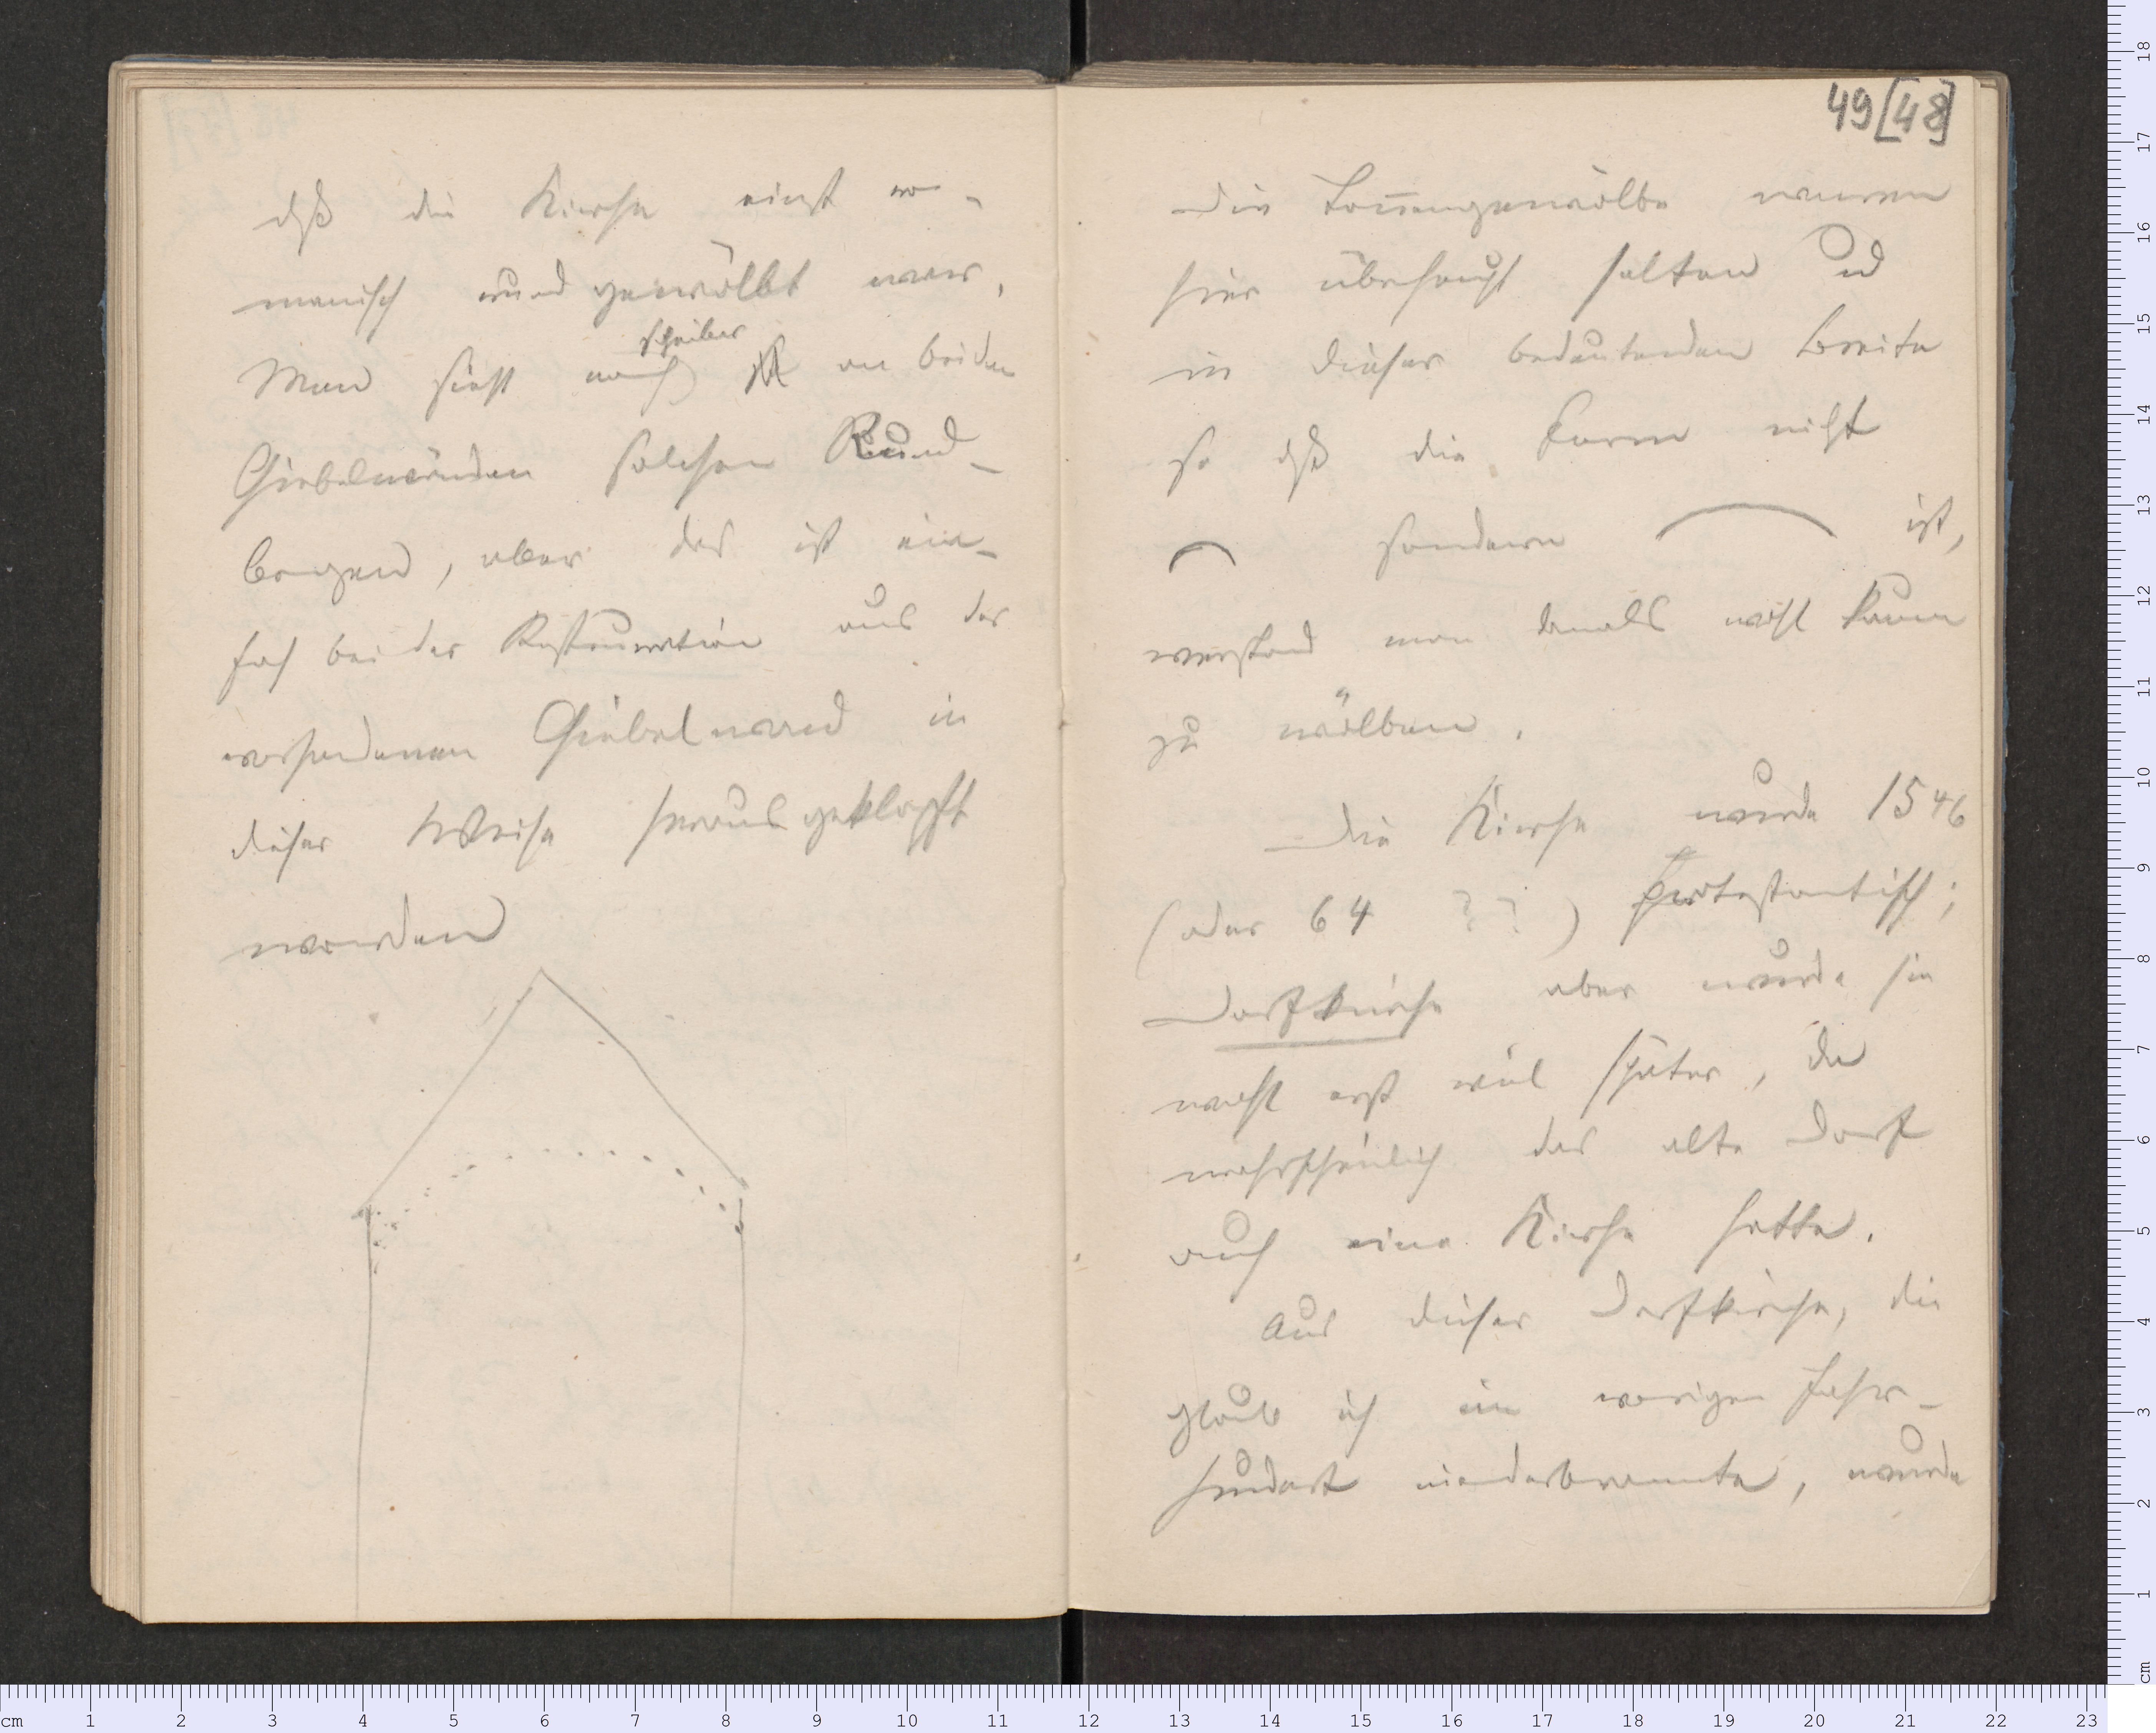 dß die Kirche einst ro-
manisch rund gewölbt war,
scheinbar
Man sieht noch an beiden
Giebelwänden solchen Rund-
bogen, aber das ist ein-
fach bei der Restauration aus der
vorhandenen Giebelwand in
dieser Weise herausgeklopft
worden
49[48]
Die Tonnengewölbe waren
hier überhaupt selten und
in dieser bedeutenden Breite
so dß die Form nicht
sondern ist,
verstand man damals wohl kaum
zu wölben.
Die Kirche wurde 1546
(oder 64 ??) protestantisch;
Dorfkirche aber wurde sie
wohl erst viel später, da
wahrscheinlich das alte Dorf
auch eine Kirche hatte.
Aus dieser Dorfkirche, die
glaub ich im vorigen Jahr-
hundert niederbrannte, wurde